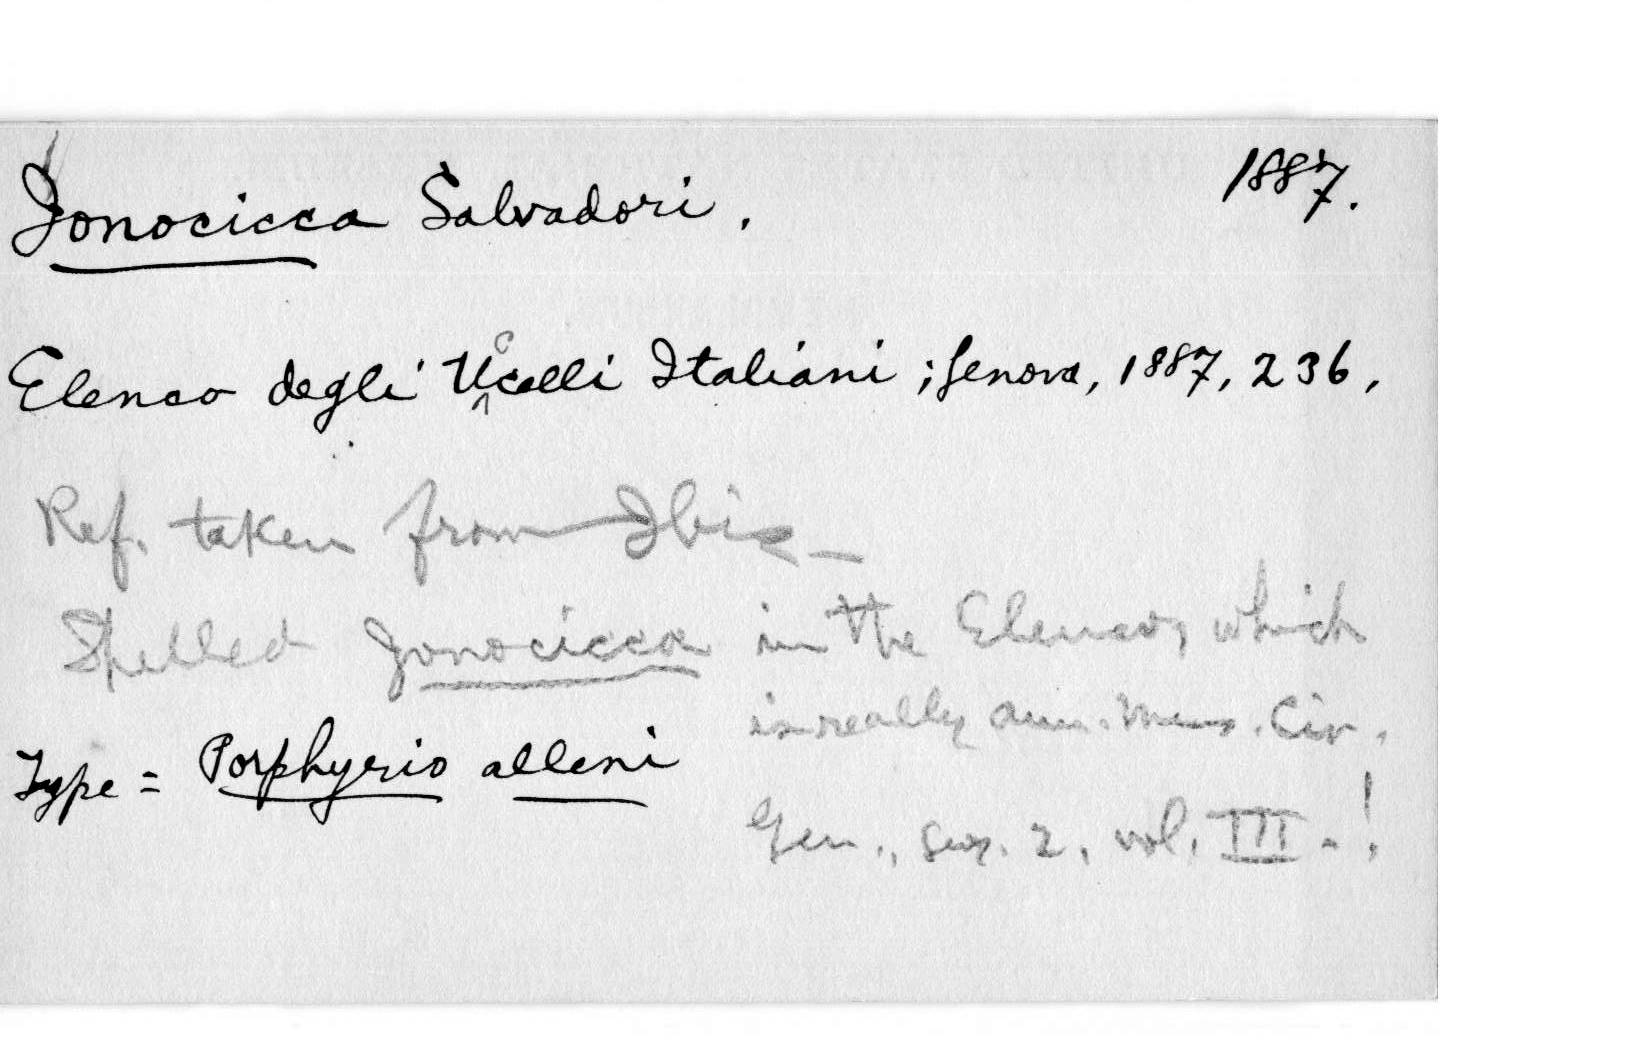 Jonocicca Salvadori. 1887.
Elenco degli Uccelli Italiani; Genova, 1887, 236.
Ref. taken from Ibis –
Spelled Jonocicca in the Elenco, which
is really Ann. Mus. Civ.
Gen., ser. 2, vol. III.!
Type = Porphyrio alleni